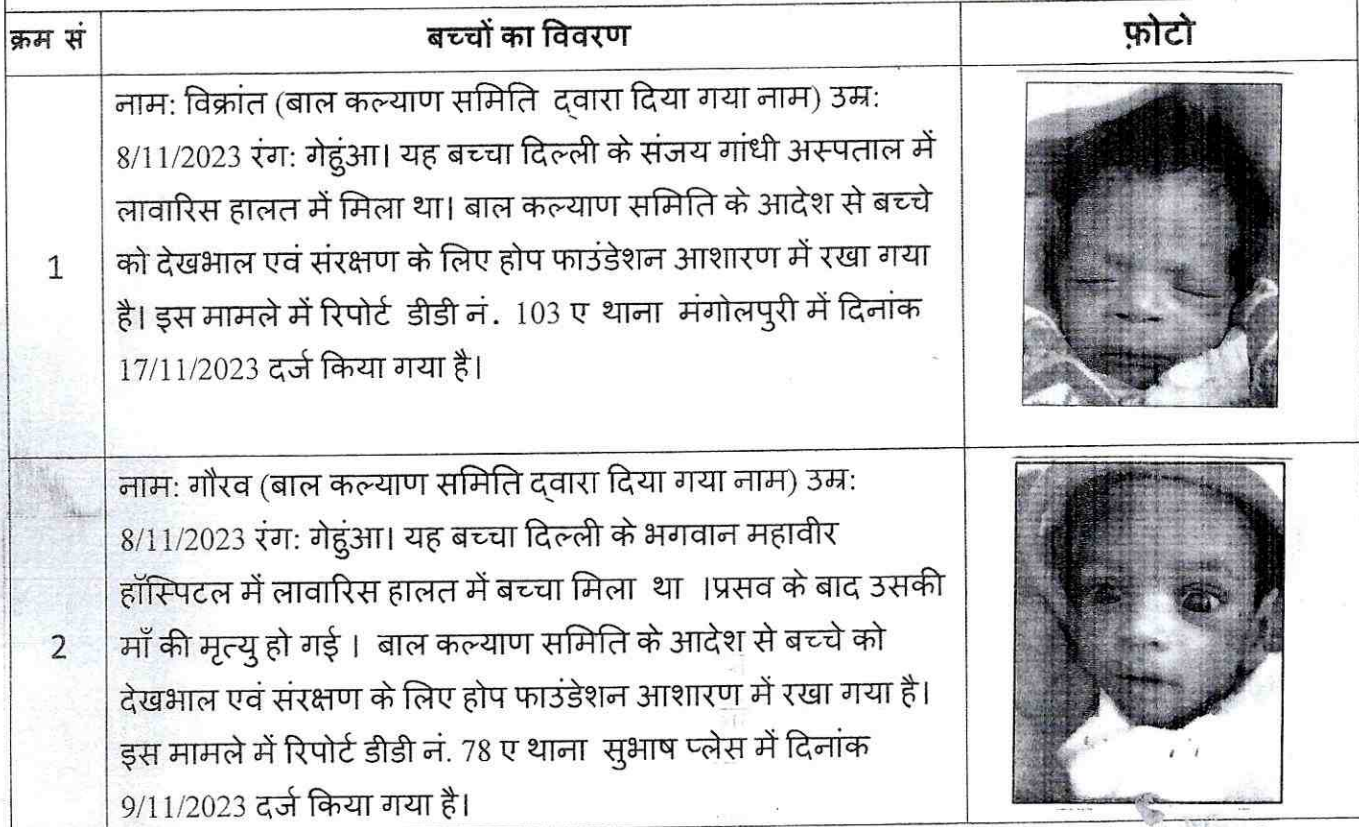 क्रम सं बच्चों का विवरण फ़ोटो
नाम: विक्रांत (बाल कल्याण समिति द्वारा दिया गया नाम) उम्र:
8/11/2023 रंग: गेहुंआ। यह बच्चा दिल्ली के संजय गांधी अस्पताल में
लावारिस हालत में मिला था। बाल कल्याण समिति के आदेश से बच्चे
1 को देखभाल एवं संरक्षण के लिए होप फाउंडेशन आशारण में रखा गया
है। इस मामले में रिपोर्ट डीडी नं. 103 ए थाना मंगोलपुरी में दिनांक
17/11/2023 दर्ज किया गया है।
नाम: गौरव (बाल कल्याण समिति द्वारा दिया गया नाम) उम्र:
8/11/2023 रंग: गेहुंआ। यह बच्चा दिल्ली के भगवान महावीर
हॉस्पिटल में लावारिस हालत में बच्चा मिला था ।प्रसव के बाद उसकी
2 माँ की मृत्यु हो गई । बाल कल्याण समिति के आदेश से बच्चे को
देखभाल एवं संरक्षण के लिए होप फाउंडेशन आशारण में रखा गया है।
इस मामले में रिपोर्ट डीडी नं. 78 ए थाना सुभाष प्लेस में दिनांक
9/11/2023 दर्ज किया गया है।